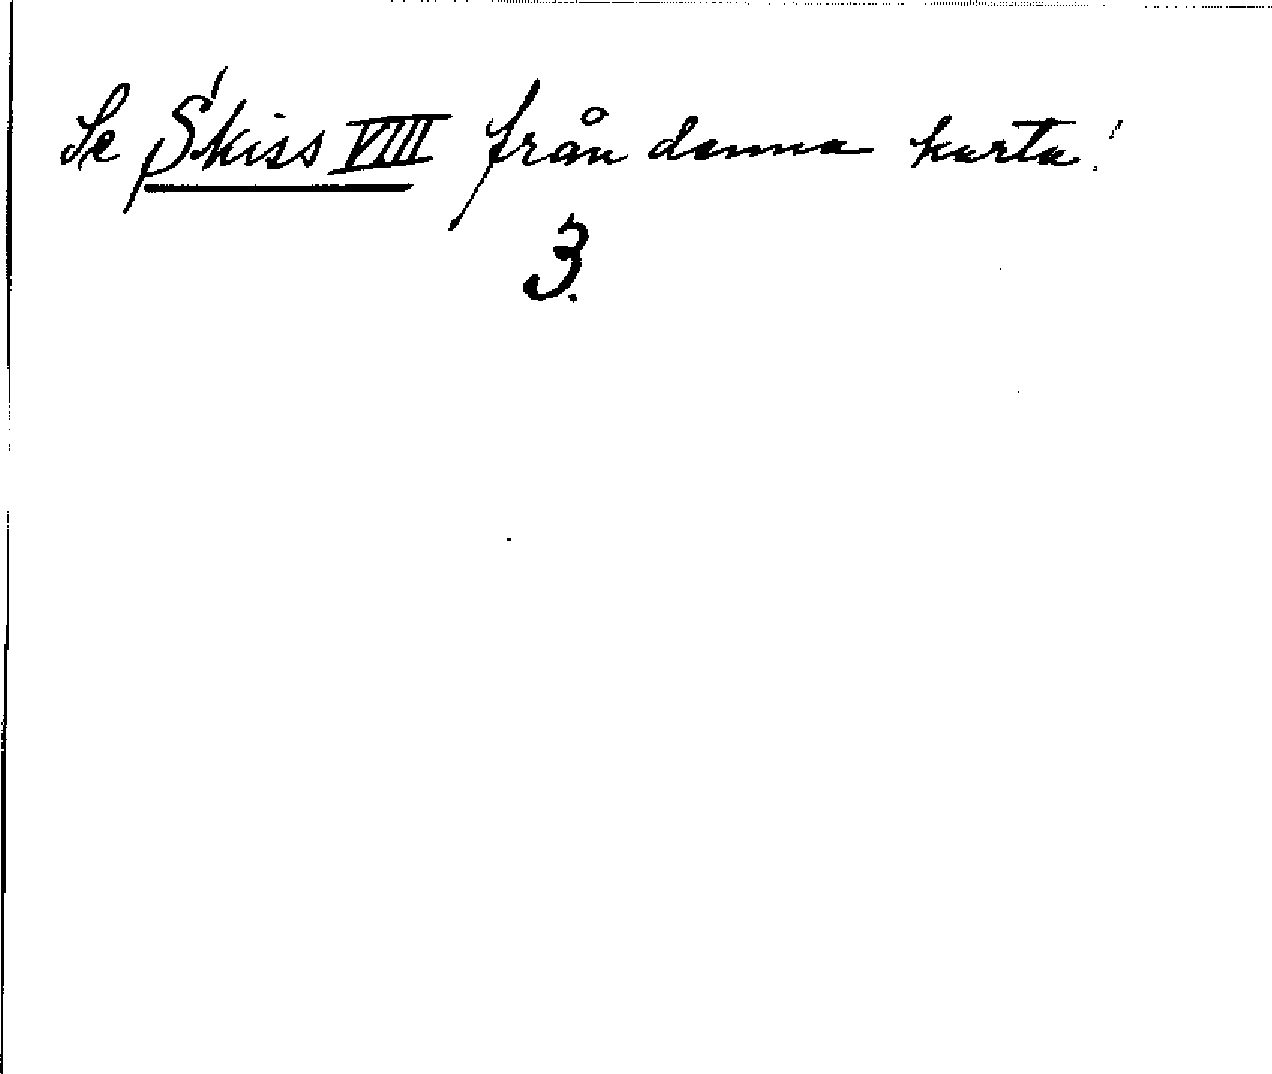 Se Skiss VIII från denna karta!
3.